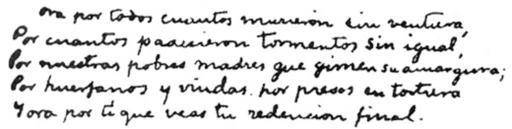 Ora por todos cuantos murieron sin ventura,
Por cuantos padecieron tormentos sin igual,
Por nuestras pobres madres que gimen su amargura;
Por huerfanos y viudas, por presos en tortura
Y ora por ti que veas tu redencion final.